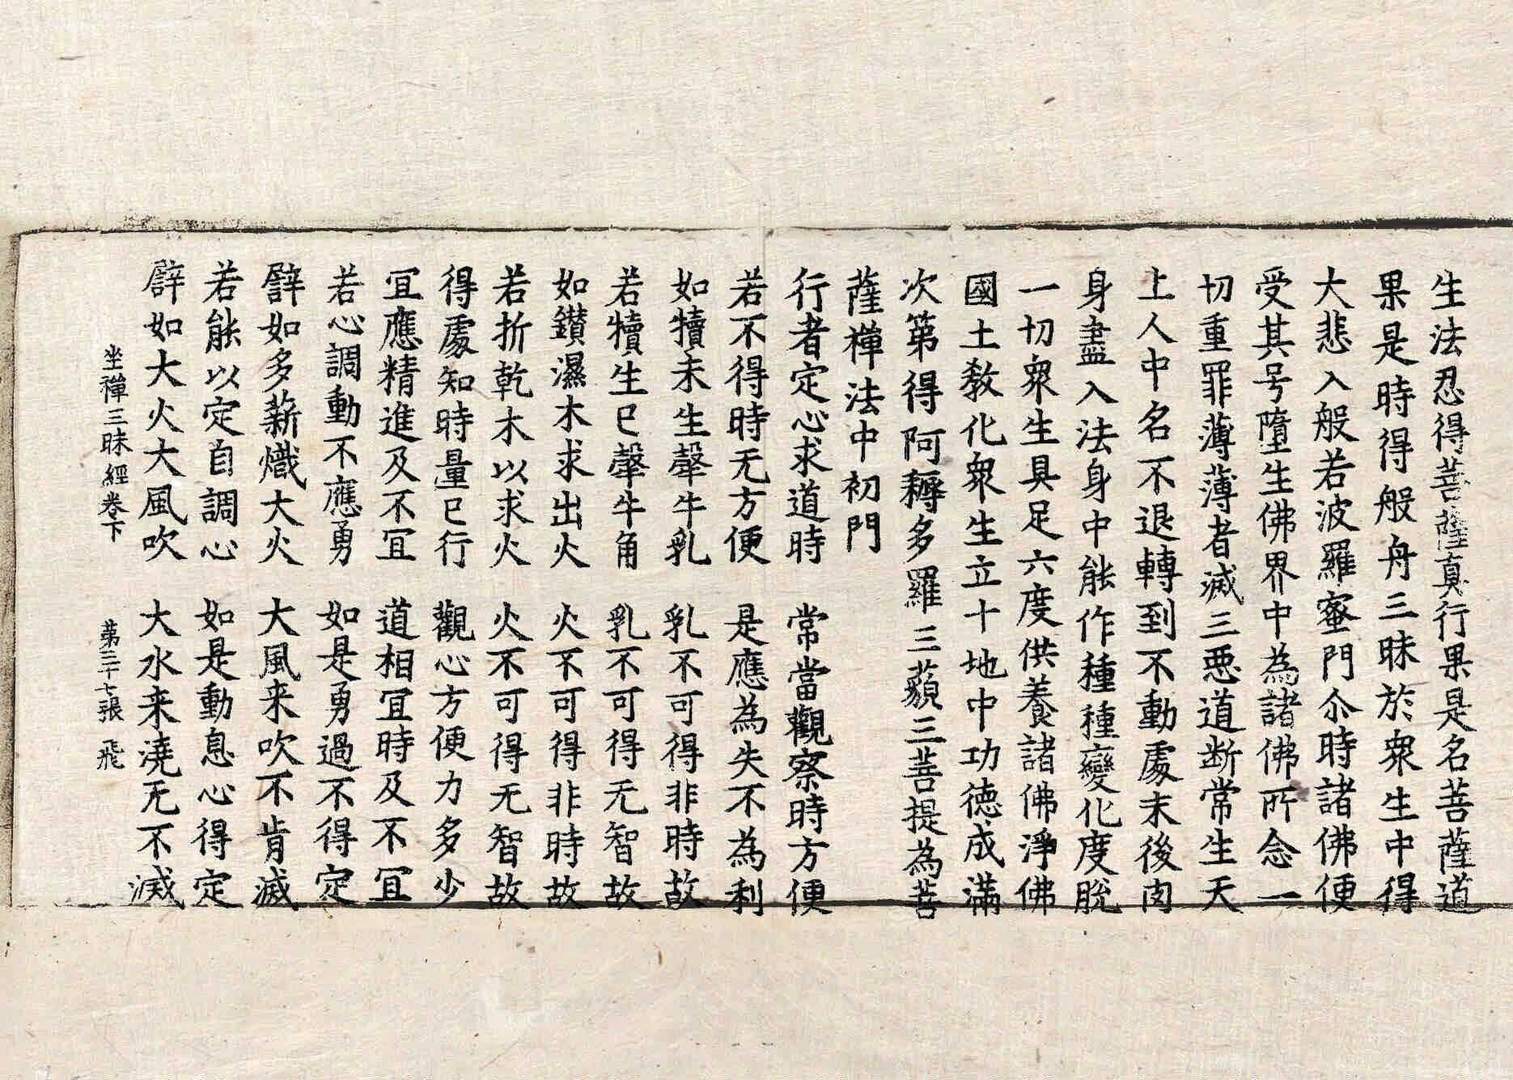 生法忍得菩薩真行果是名菩薩道
果是時得般舟三昧於衆生中得
大悲入般若波羅蜜門尒時諸佛便
受其号墮生佛界中為諸佛所念一
切重罪薄薄者滅三惡道断常生天
上人中名不退轉到不動處末後肉
身盡入法身中能作種種變化度脫
一切衆生具足六度供養諸佛淨佛
國土教化衆生立十地中功德成滿
次第得阿耨多羅三藐三菩提為菩
薩禪法中初門
行者定心求道時　常當觀察時方便
若不得時无方便　是應為失不為利
如犢未生𤚲牛乳　乳不可得非時故
若犢生已𤚲牛角　乳不可得无智故
如鑚濕木求出火　火不可得非時故
若折乾木以求火　火不可得无智故
得處知時量已行　觀心方便力多少
冝應精進及不冝　道相冝時及不冝
若心調動不應勇　如是勇過不得定
譬如多薪熾大火　大風来吹不肯滅
若能以定自調心　如是動息心得定
譬如大火大風吹　大水来澆无不滅
坐禪三昧經卷下　第三十七張　飛